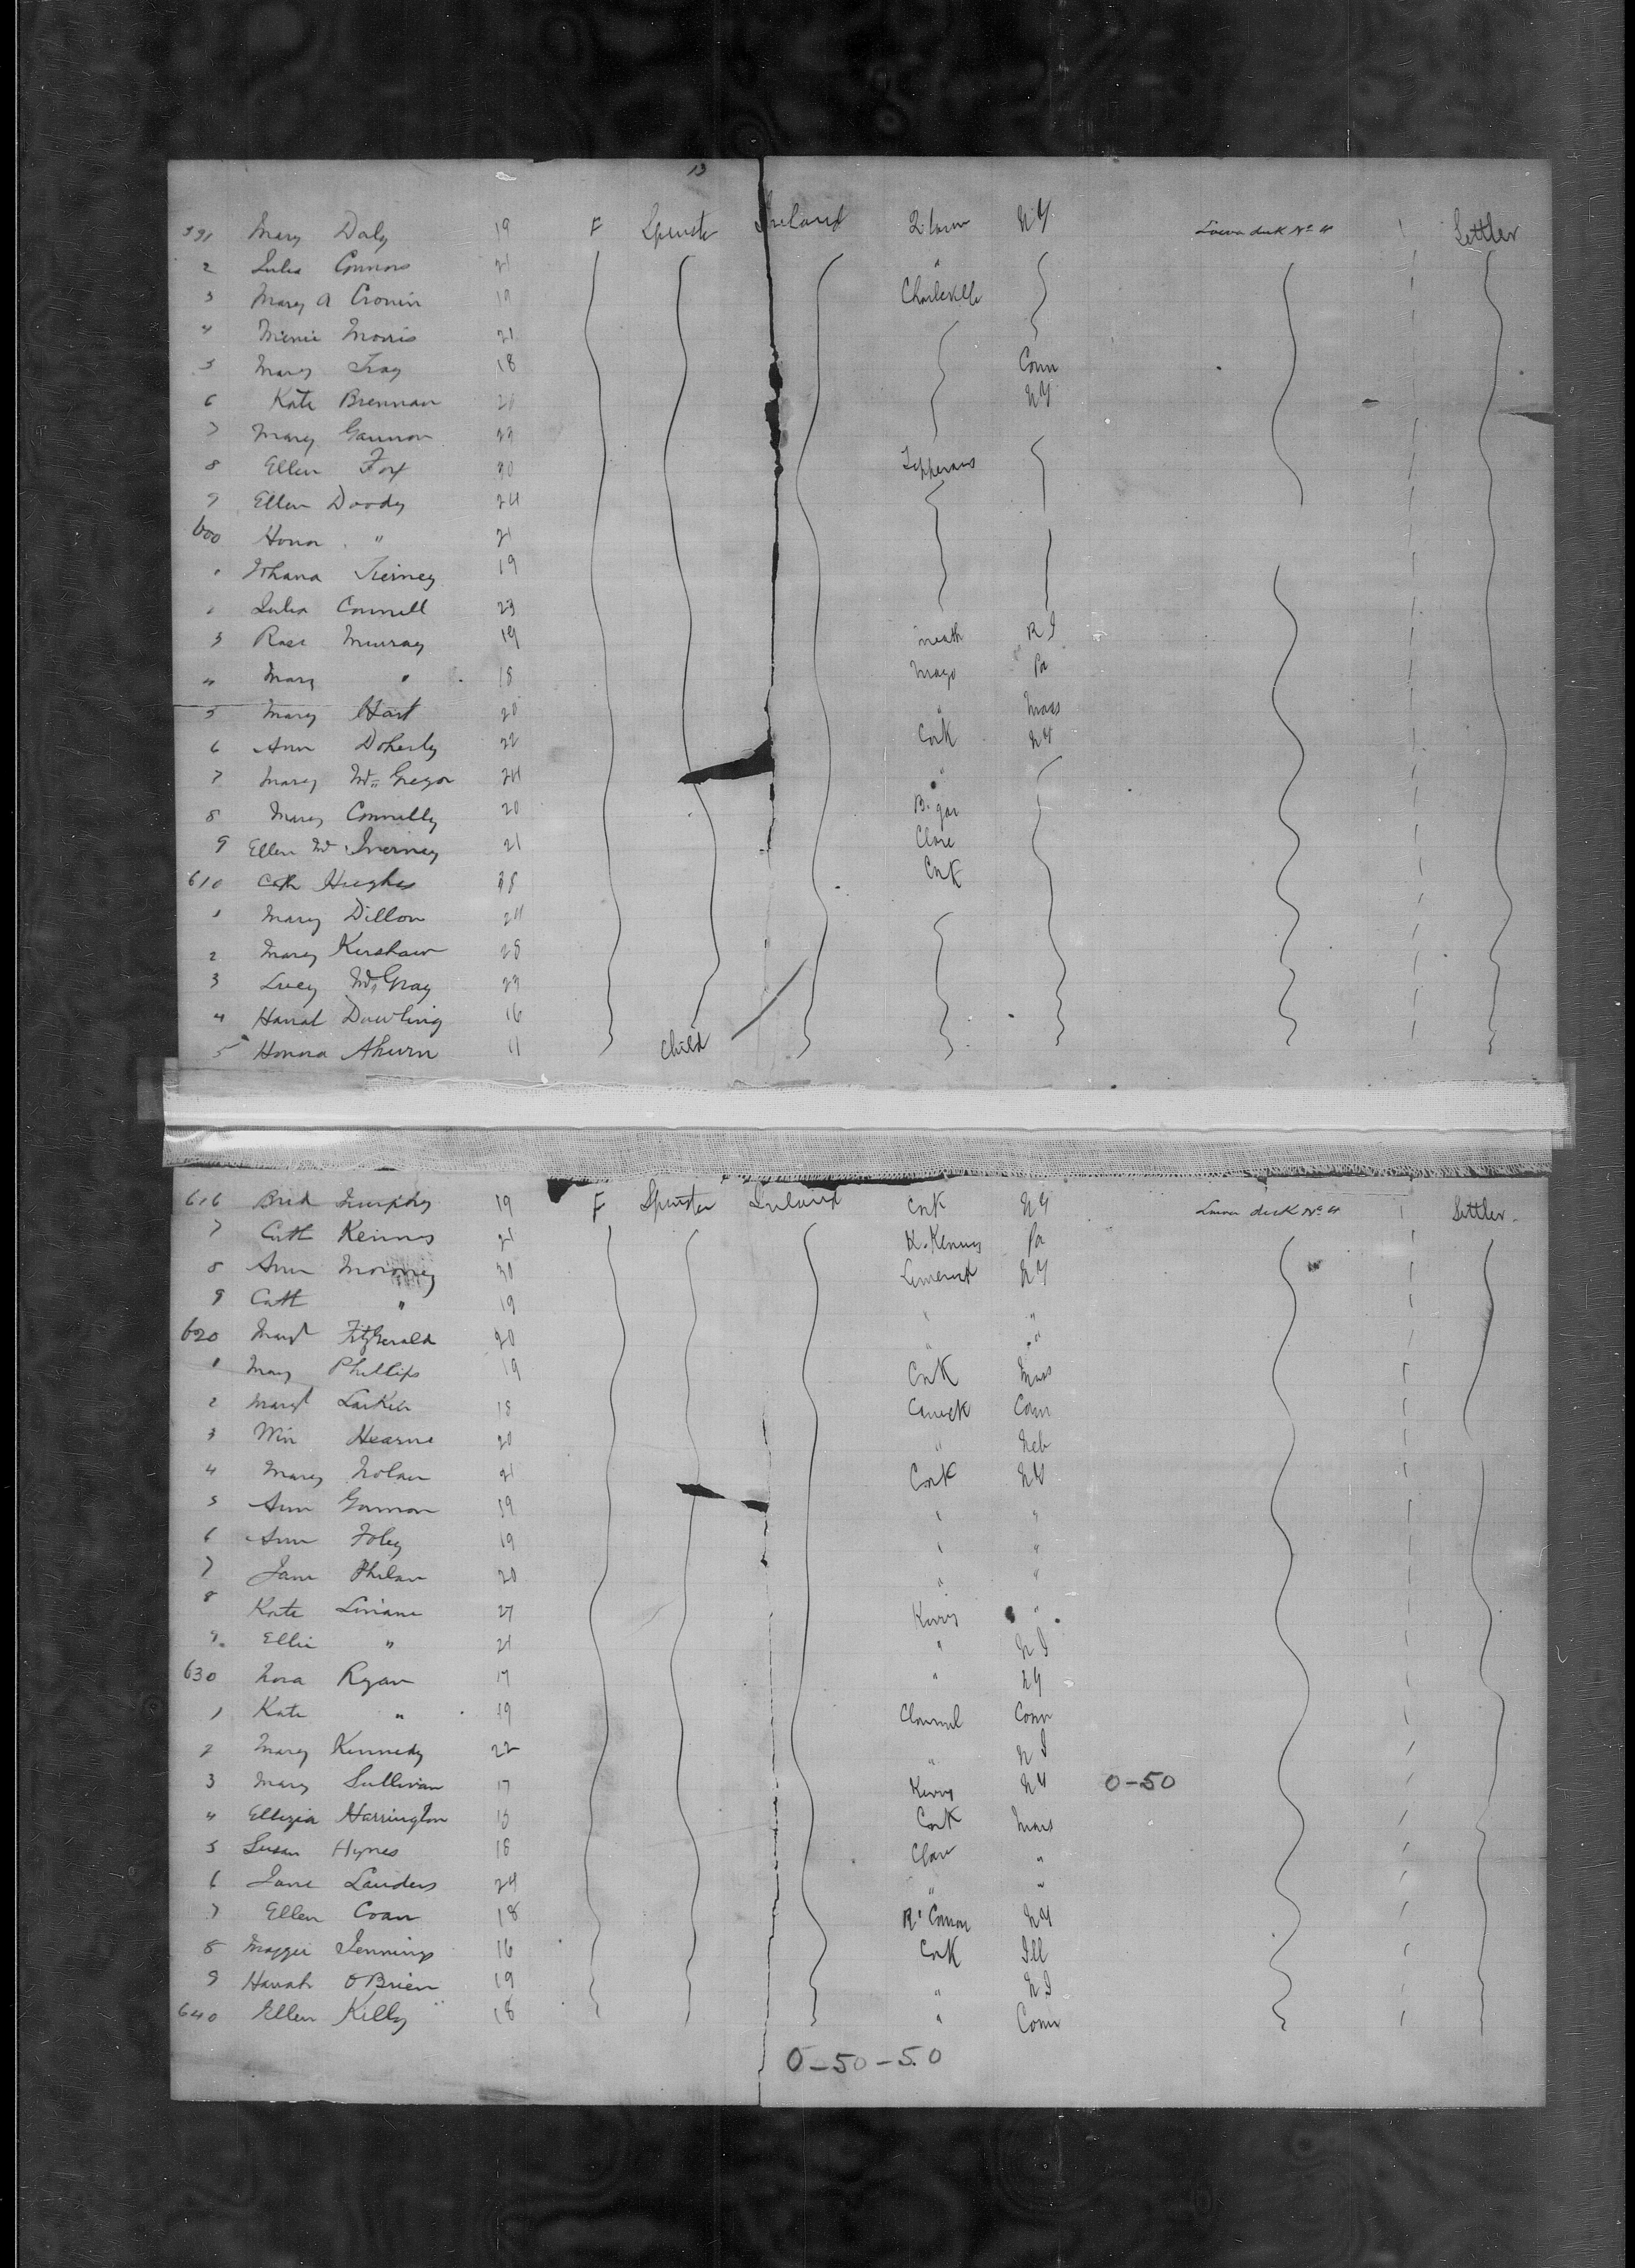 13
591 Mary Daly 19 F Spinster Ireland N.Y. Lower deck No 4 1 Settler
2 Julia Connors 21 " 1
3 Mary A Cronin 19 Charleville 1
4 Minnie Morris 21 1
5 Mary 18 Conn 1
6 Kate Brennan 20 NY 1
7 Mary Gannon 22 1
8 Ellen Fox 20 1
9 Ellen Doody 24 1
600 Honor " 21 1
1 Johana Tierney 19 1
Julia Connell 23 1
3 Rose Murray 19 Meath R I 1
4 Mary " 18 Mayo Pa 1
5 Mary Hart 20 " Mass 1
6 Ann Doherty 22 Cork NY 1
7 Mary Mc Gregor 24 " 1
8 Mary Connelly 20 1
9 Ellen Mc Inerney 21 Clare 1
610 Cath Hughes 18 Cork 1
1 Mary Dillon 24 1
2 Mary Kershaw 28 1
3 Lucy Mc Gray 1
4 Hanah Dowling 16 1
5 Honora Ahern 11 Child 1
616 Brid Murphy 19 F Spinster Ireland Cork NY Lower deck No 4 1 Settler
7 Cath 21 Pa 1
8 Ann Moroney 30 Limerick NY 1
9 Cath " 19 " " 1
620 Margt FitzGerald 20 " " 1
1 Mary Phillips 19 Cork Mass 1
2 Margt Larkin 18 Conn 1
3 Win Hearne 20 " Neb 1
4 Mary Nolan 21 Cork NY 1
5 Ann Gorman 19 " " 1
6 Ann Foley 19 " " 1
7 Jane Phelan 20 " " 1
8 Kate 27 Kerry " 1
9 Ellie " 21 " N J 1
630 Nora Ryan 17 " NY 1
1 Kate " 19 Clonmel Conn 1
2 Mary Kennedy 22 " N J 1
3 Mary Sullivan 17 Kerry NY 0-50 1
4 Harrington Cork Mass 1
5 Susan Hynes 18 Clare " 1
6 Jane Landers 24 " " 1
7 Ellen Coan 18 NY 1
8 Maggie Jennings 16 Cork Ill 1
9 Hanah O Brien 19 " N J 1
640 Ellen Kelly 18 " Conn 1
0-50-50